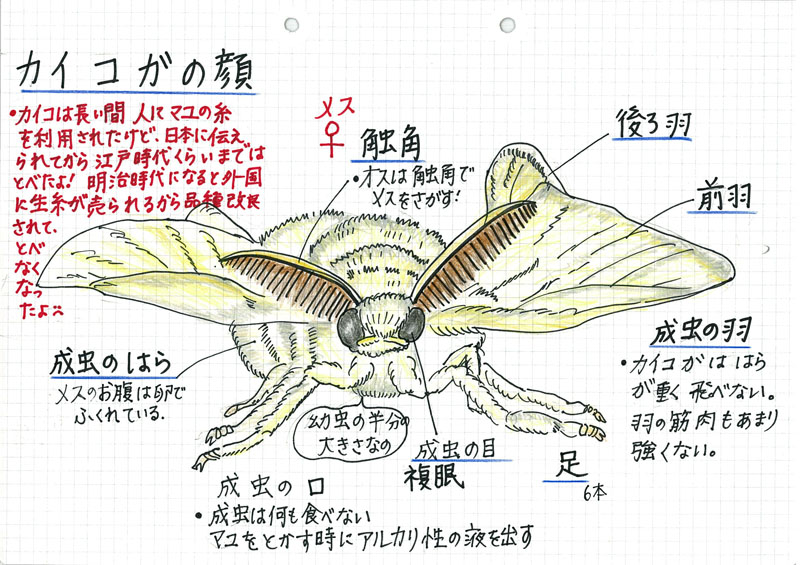 カイコガの顔
・カイコは長い間 人に マユの糸
を利用されたけど、日本に伝え
られてから 江戸時代くらいまでは
とべたよ! 明治時代になると外国
に生糸が売られるから品種改良
されて、
とべ
なく
なっ
たよ
メス
♀
触角
・オスは触角で
メスをさがす!
後ろ羽
前羽
成虫の羽
・カイコガははら
が重く飛べない。
羽の筋肉もあまり
強くない。
成虫のはら
メスのお腹は卵で
ふくれている。
幼虫の半分の
大きさなの
成虫の目
複眼
足
6本
成虫の口
・成虫は何も食べない
マユをとかす時にアルカリ性の液を出す